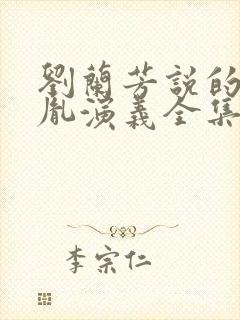 劉蘭芳説的
胤演義全集
李宗仁